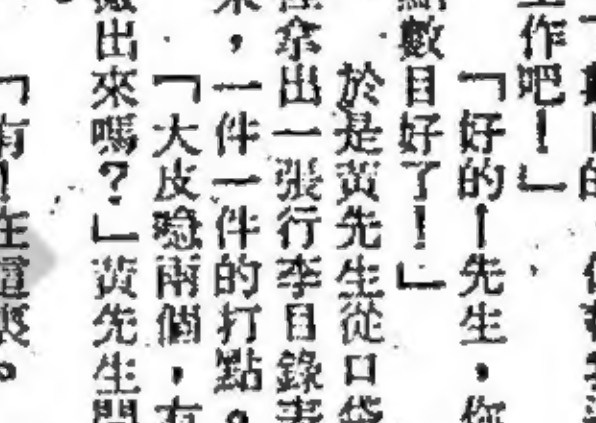 數目的
工作吧！」
「好的！先生，你
點數目好了！」
於是黃先生從口袋
拿出一張行李目錄表
來，一件一件的打點。
「大皮喼兩個，有
搬出來嗎？」黃先生問
「有！在這裏。